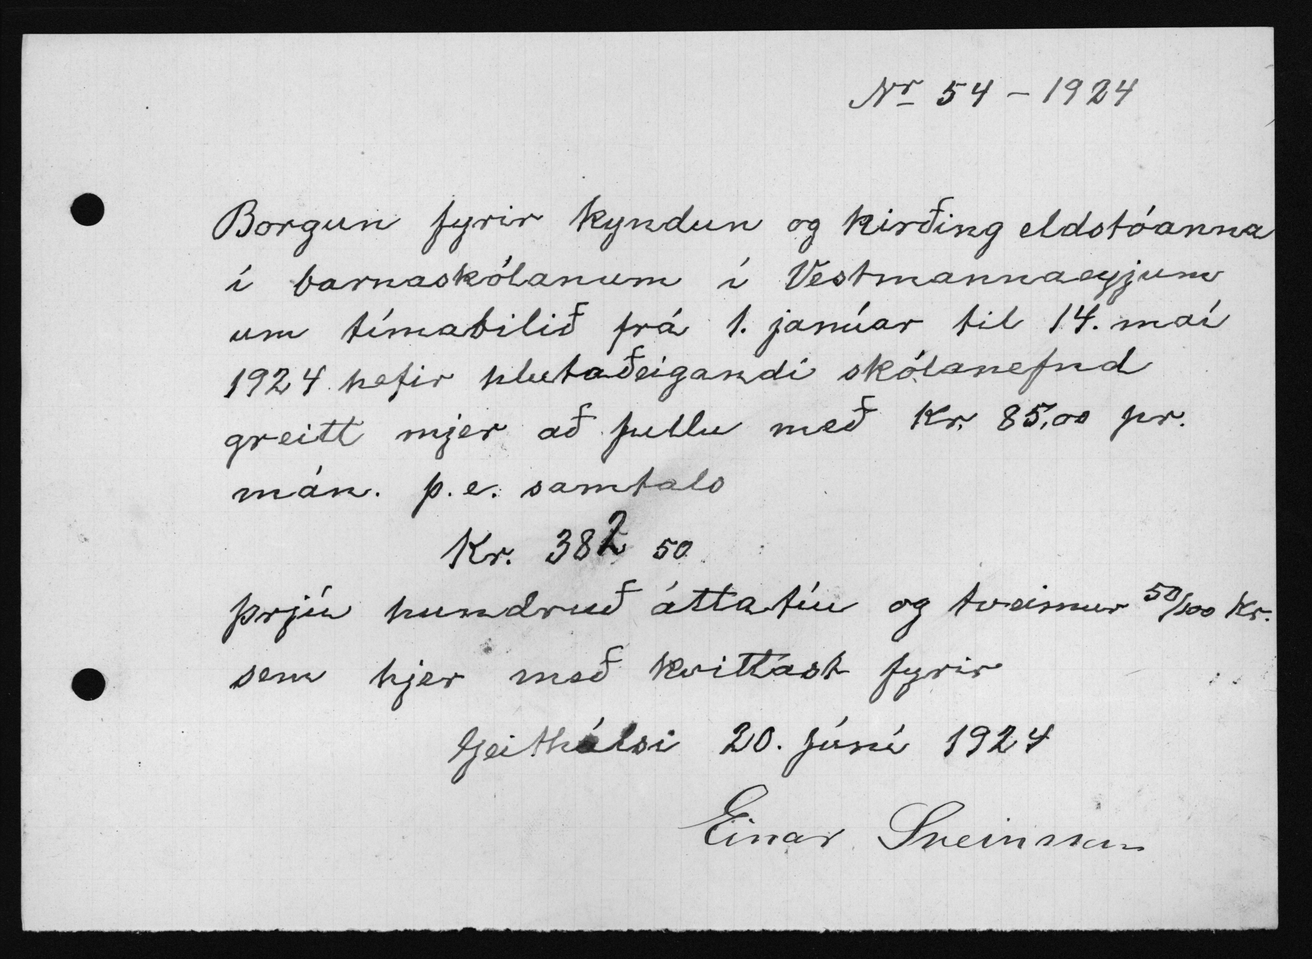 Nr 54 - 1924
Borgun fyrir kyndun og hirðing eldstóanna
í barnaskólanum í Vestmannaeyjum
um tímabilið frá 1. janúar til 14. maí
1924 hefir hlutaðeigandi skólanefnd
greitt mjer að fullu með Kr. 85,00 pr.
mán. þ.e. samtals
Kr. 382 50
þrjú hundruð áttatíu og tveimur 50/100 Kr.
sem hjer með kvittast fyrir
Geithálsi 20. júní 1924
Einar Sveinsson